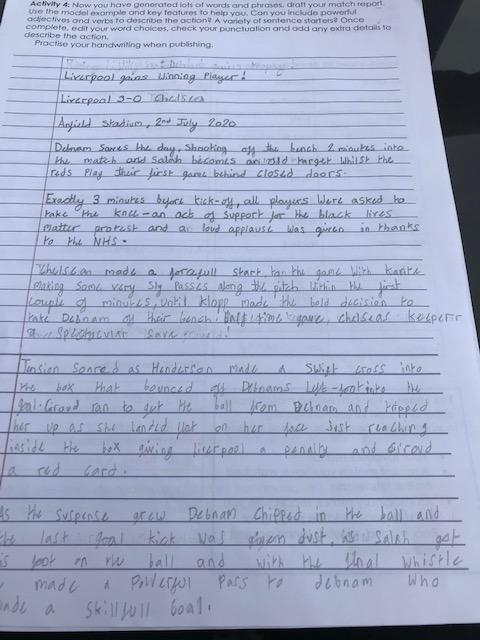 Activity 4: Now you have generated lots of words and phrases, draft your match report.
Use the model example and key features to help you. Can you include powerful
adjectives and verbs to describe the action? A variety of sentence starters? Once
complete, edit your word choices, check your punctuation and add any extra details to
describe the action.
Practise your handwriting when publishing.
Liverpool gains Winning Player!
Liverpool 3-0 Chelsea
Anfield Stadium, 2nd July 2020
Debnam Saves the day, Shooting off the bench 2 minutes into
the match and Salah becomes an old target whilst the
reds Play their first game behind closed doors.
Exactly 3 minutes before kick-off, all players were asked to
take the knee - an act of support for the black lives
matter protest and an loud applause was given in thanks
to the NHS.
Chelsea made a forcefull start to the game with kante
making Some very Sly Passes along the pitch within the first
couple of minutes, until klopp made the bold decision to
take Debnam off their bench. Half time gave, chelseas keeper
a Spectacular Save
Tension Soared as Henderson made a Swift cross into
the box that bounced off Debnams Left-foot into the
goal. Giroud ran to get the ball from Debnam and tripped
her up as she landed flat on her face Just reaching
inside the box giving liverpool a penalty and Giroud
a red card.
As the suspense grew Debnam Chipped in the ball and
the last goal kick was given Just, as Salah got
is foot on the ball and with the final whistle
made a Powerful Pass to debnam who
made a Skillfull Goal.